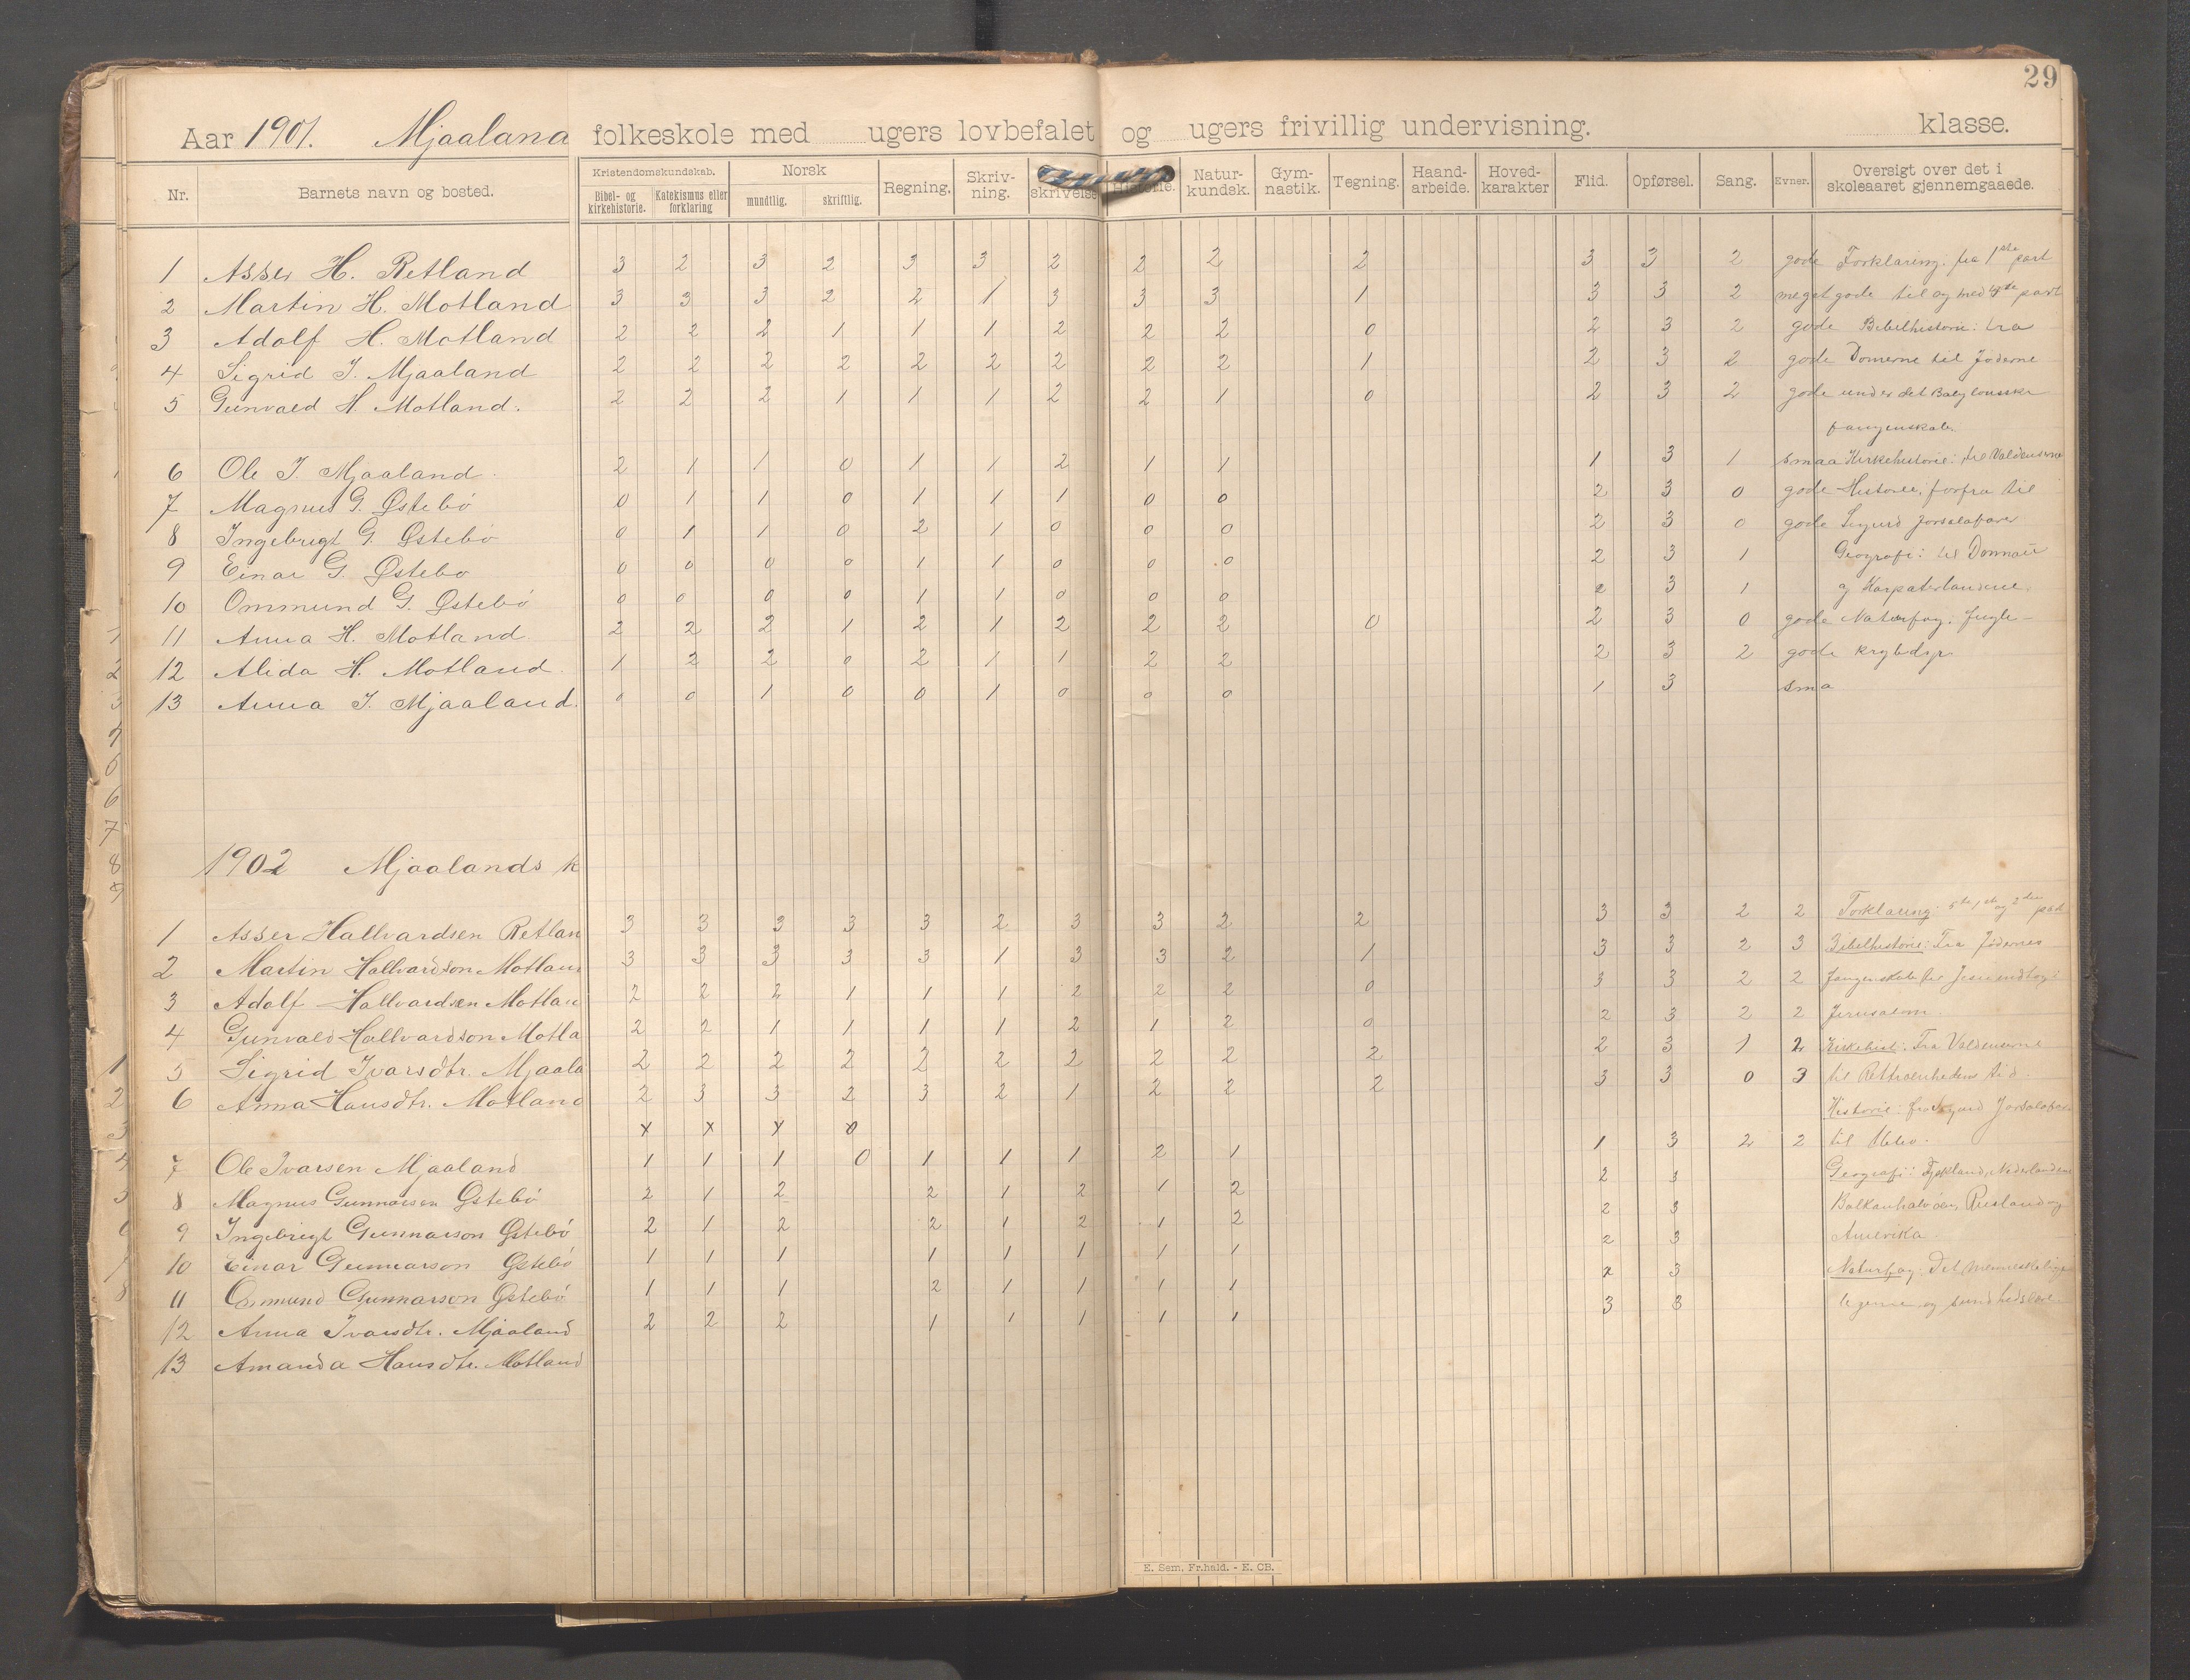 29
Aar 1901. Mjaaland folkeskole med ugers lovbefalet og ugers frivillig undervisning. klasse.
Nr. Barnets navn og bosted. Kristendomskundskab. Bibel- og kirkehistorie. Katekismus eller forklaring Norsk mundtlig. skriftlig. Regning. Skriv-ning. skrivelse Historie. Natur-kundsk. Gym-nastik. Tegning. Haand-arbeide. Hoved-karakter Flid. Opførsel. Sang. Evner. Oversigt over det i skoleaaret gjennemgaaede.
1 Asser H. Retland 3 2 3 2 3 3 2 2 2 2 3 3 2 gode Forklaring: fra 1ste part
2 Martin H. Motland 3 3 3 2 2 1 3 3 3 1 3 3 2 meget gode til og med 4de part
3 Adolf H. Motland 2 2 2 1 1 1 2 2 2 0 2 3 2 gode Bibelhistorie: fra
4 Sigrid I. Mjaaland 2 2 2 2 2 2 2 2 2 1 2 3 2 gode Domerne til Jøderne
5 Gunvald H. Motland. 2 2 2 1 1 1 2 2 1 0 2 3 2 gode under det Babylonske
fangenskab.
6 Ole I. Mjaaland. 2 1 1 0 1 1 2 1 1 1 3 1 smaa Kirkehistorie: til Valdenserne
7 Magnus G. Østebö 0 1 1 0 1 1 1 0 0 2 3 0 gode Historie, forfra til
8 Ingebrigt G. Østebö 0 1 1 0 2 1 0 0 0 2 3 0 gode Sigurd Jorsalafarer
9 Einar G. Østebö 0 0 0 0 1 1 0 0 0 2 3 1 Geografi: til Donau
10 Ommund G. Østebö 0 0 0 0 1 1 0 0 0 2 3 1 og Karpaterlandene.
11 Anna H. Motland 2 2 2 1 2 1 2 2 2 0 2 3 0 gode Naturfag: fugle-
12 Alida H. Motland. 1 2 2 0 2 1 1 2 2 2 3 2 gode krybdyr
13 Anna I. Mjaaland. 0 0 1 0 0 1 0 0 0 1 3 sma
1902 Mjaalands k
1 Asser Hallvardsen Retlan 3 3 3 3 3 2 3 3 2 2 3 3 2 2 Forklaring: 5te, 1ste og 2den part
2 Martin Hallvardson Motlan 3 3 3 3 3 1 3 3 2 1 3 3 2 3 Bibelhistorie: Fra Jødernes
3 Adolf Hallvardsen Motlan 2 2 2 1 1 1 2 2 2 0 3 3 2 2 fangenskab til Jesu indtog i
4 Gunvald Hallvardson Motla 2 2 1 1 1 1 2 1 2 0 2 3 2 2 Jerusalem.
5 Sigrid Ivarsdtr. Mjaala 2 2 2 2 2 2 2 2 2 2 2 3 1 2 Kirkehist: Fra Valdenserne
6 Anna Hansdtr. Motland 2 3 3 2 3 2 1 2 2 2 3 3 0 3 til Rettroenhedens tid.
x x x 0 Historie: fra Sigurd Jorsalafar
7 Ole Ivarsen Mjaaland 1 1 1 0 1 1 1 2 1 1 3 2 2 til
8 Magnus Gunnarsen Østebö 2 1 2 2 1 2 1 2 2 3 Geografi: Tyskland, Nederlandene
9 Ingebrigt Gunnarson Østebö 2 1 2 2 1 2 1 2 2 3 Balkanhalvöen, Rusland og
10 Einar Gunnarson Østebö 1 1 1 1 1 1 1 1 2 3 Amerika.
11 Ommund Gunnarson Østebö 1 1 1 2 1 1 1 1 2 3 Naturfag: Det menneskelige
12 Anna Ivarsdtr. Mjaaland 2 2 2 1 1 1 1 1 3 3 legeme og sundhedslære.
13 Amanda Hansdtr. Motland
E. Sem, Fr.hald. - E. CB.